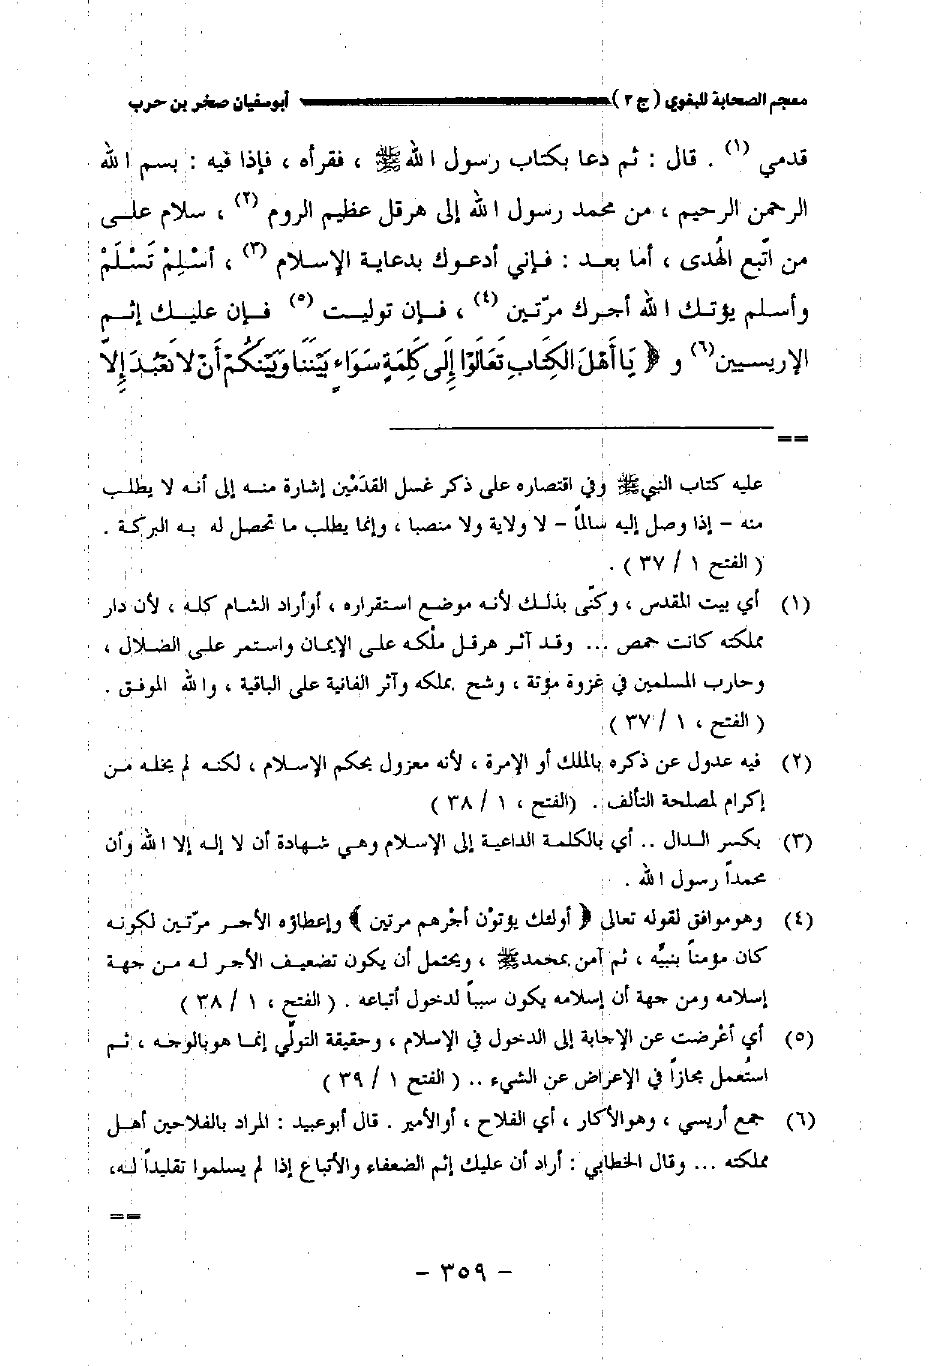 معجم الصحابة للبغوي ( ج ٣ ) أبوسفيان صخر بن حرب
قدمي (١) . قال : ثم دعا بكتاب رسول الله ﷺ ، فقرأه ، فإذا فيه : بسم الله
الرحمن الرحيم ، من محمد رسول الله إلى هرقل عظيم الروم (٢) ، سلام على
من اتّبع الهُدى ، أما بعد : فإني أدعوك بدعاية الإسلام (٣) ، أسْلِمْ تَسْلَمْ
وأسلم يؤتك الله أجرك مرّتين (٤) ، فإن توليت (٥) فإن عليك إثم
الإريسيين(٦) و ﴿ يَا أَهْلَ الكِتَابِ تَعَالَوْا إِلَى كَلِمَةٍ سَوَاءٍ بَيْنَنَا وَبَيْنَكُمْ أَنْ لا نَعْبُدَ إِلاّ
==
عليه كتاب النبي ﷺ وفي اقتصاره على ذكر غسل القدَمْين إشارة منه إلى أنه لا يطلب
منه - إذا وصل إليه سالماً - لا ولاية ولا منصبا ، وإنما يطلب ما تحصل له به البركة .
( الفتح ١ / ٣٧ ) .
(١) أي بيت المقدس ، وكنّى بذلك لأنه موضع استقراره ، أوأراد الشام كله ، لأن دار
مملكته كانت حمص ... وقد آثر هرقل ملْكه على الإيمان واستمر على الضلال ،
وحارب المسلمين في غزوة مؤتة ، وشح بملكه وآثر الفانية على الباقية ، والله الموفق .
( الفتح ، ١ / ٣٧ )
(٢) فيه عدول عن ذكره بالملك أو الإمرة ، لأنه معزول بحكم الإسلام ، لكنه لم يخله من
إكرام لمصلحة التألف . (الفتح ، ١ / ٣٨ )
(٣) بكسر الدال .. أي بالكلمة الداعية إلى الإسلام وهي شهادة أن لا إله إلا الله وأن
محمداً رسول الله .
(٤) وهوموافق لقوله تعالى ﴿ أولئك يؤتوْن أجْرهم مرتين ﴾ وإعطاؤه الأجر مرّتين لكونه
كان مؤمناً بنبيَّه ، ثم آمن بمحمدﷺ ، ويحتمل أن يكون تضعيف الأجر له من جهة
إسلامه ومن جهة أن إسلامه يكون سبباً لدخول أتباعه . ( الفتح ، ١ / ٣٨ )
(٥) أي أعْرضت عن الإجابة إلى الدخول في الإسلام ، وحقيقة التولّي إنما هوبالوجه ، ثم
استُعمل مجازاً في الإعراض عن الشيء .. ( الفتح ١ / ٣٩ )
(٦) جمع أريسي ، وهوالأكار ، أي الفلاح ، أوالأمير . قال أبوعبيد : المراد بالفلاحين أهل
مملكته ... وقال الخطابي : أراد أن عليك إثم الضعفاء والأتباع إذا لم يسلموا تقليداً له،
==
- ٣٥٩ -